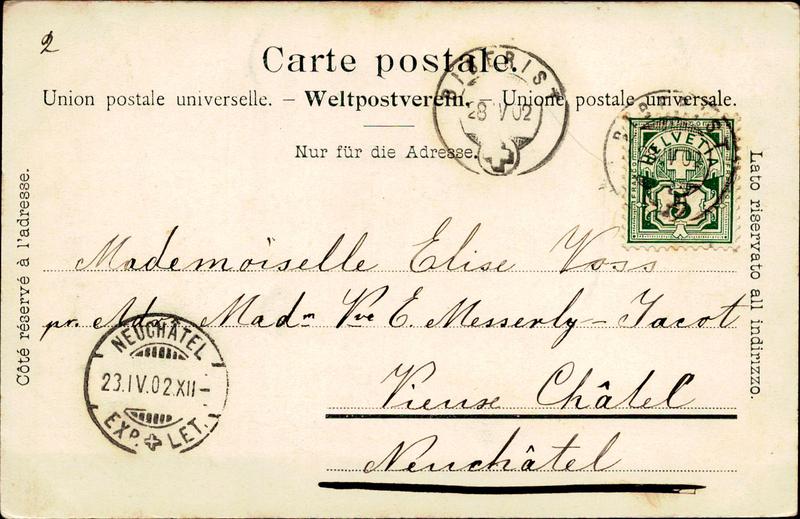 2
Carte postale.
Union postale universelle. – Weltpostverein. – Unione postale universale.
Nur für die Adresse.
BIBERIST
28 V 02
HELVETIA
5
Côté réservé à l'adresse.
Lato riservato all indirizzo.
Mademoiselle Elise Voss
pr. Adr. Madm Vve E. Messerly – Jacot
Vieux Châtel
Neuchâtel
NEUCHÂTEL
23.IV.02.XII–
EXP. LET.